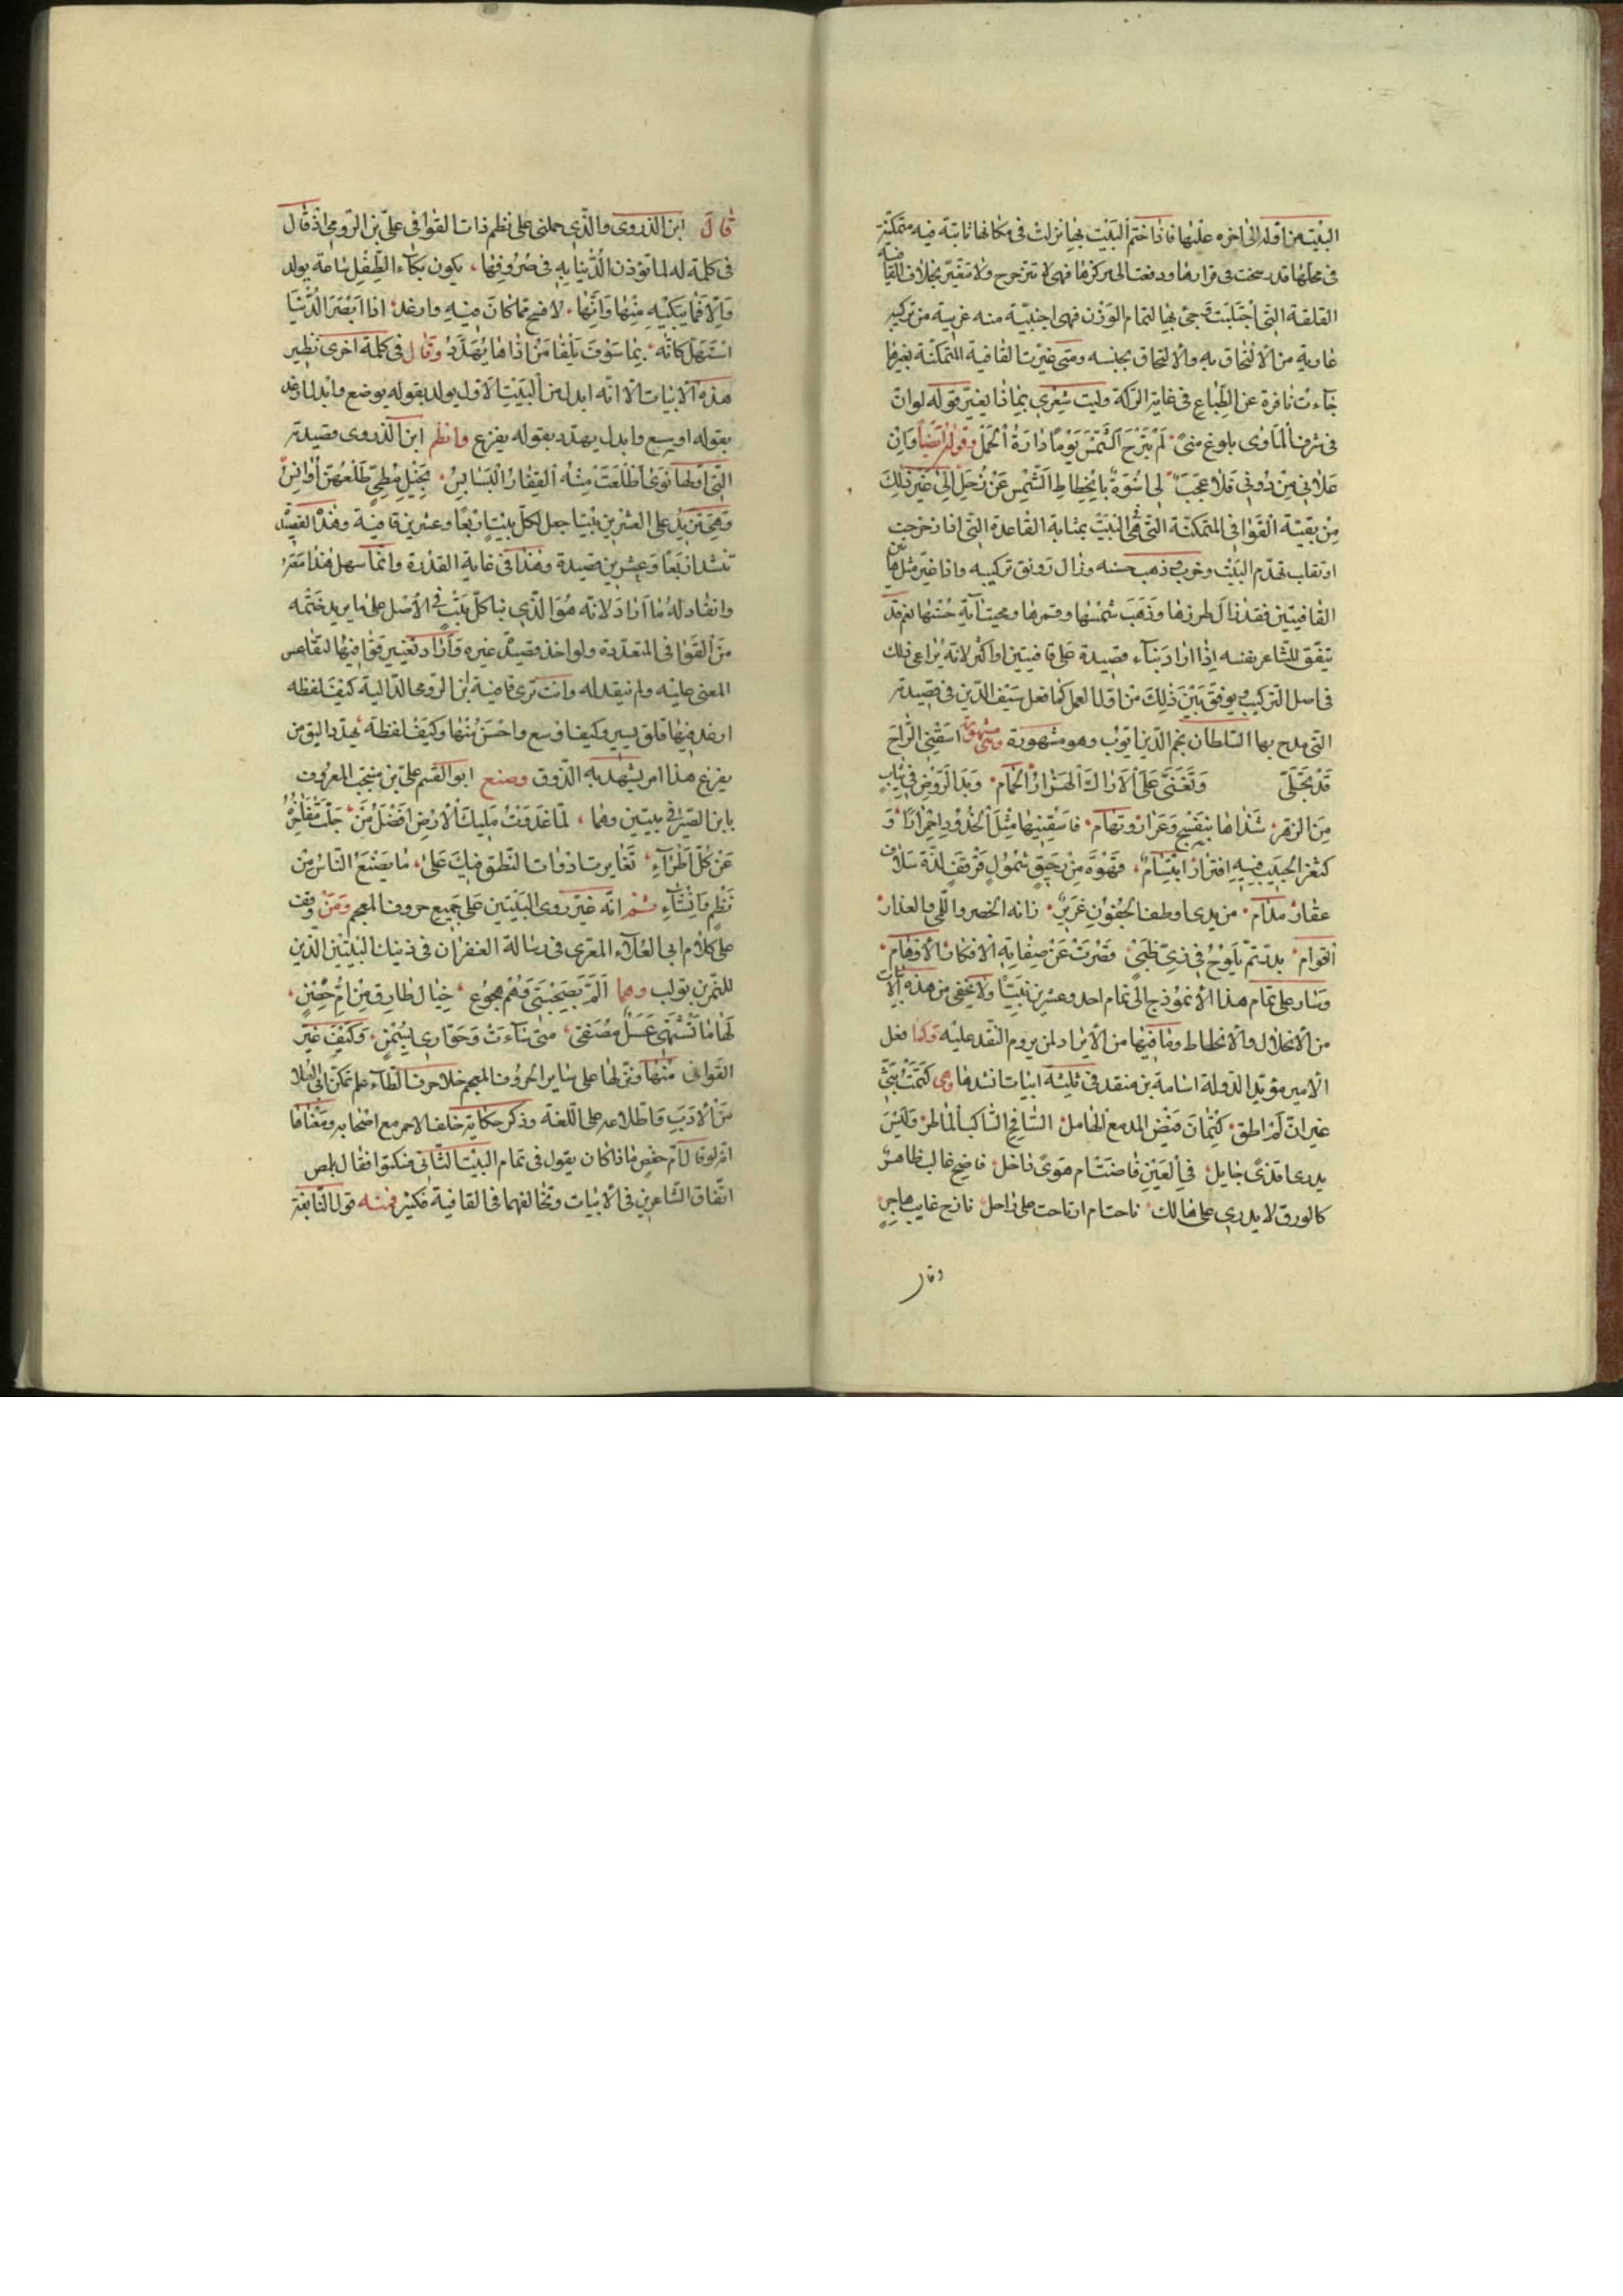 البيت من اوله الى اخره عليها فاذا ختم البيت بها نزلت فى مكانها ثابتة فيه متمكنة
فى محلها قد رسخت فى قرارها ودفعت الى مركزها فهى لا تتزحزح ولا تتغير بخلاف القافية
القلقة التى اجتلبت وجئ بها لتمام الوزن فهى اجنبية منه غريبة من تركيبه
عارية من الالتحاق به والالتحاق بجنسه ومتى غيرت القافية المتمكنة بغيرها
جاءت نافرة عن الطباع فى غاية الركة وليت شعرى بماذا يغير قوله لو ان
فى شرف المأوى بلوغ منى لَمْ تبرح الشمس يَوْمًا دارة الحمل وقوله ايضا وَاِنْ
عَلَانِى مَنْ دُونِى فَلَا عَجَبَ لِى اُسْوَةٌ بِانْحِطَاطِ الشَّمْسِ عَنْ زُحَلِ اِلى غَيْرِ ذلِكَ
مِنْ بقيّة القَوَافِى المتمكنة التى هى البيت بمثابة القاعدة التى اذا نزحت
او تقلب تهدم البَيْت وخرب وذهب حسنه وزال رونق تركيبه واذا غير مثل هاتين
القافيتين فقد زال طرزها وَذَهَبَ شمسُها وقمرها ومحيت آية حُسْنها نعم قد
يتفق للشاعر بنفسه اذا اراد بناء قصيدة على قافيتين او اكثر لانه يراعى ذلك
فى اصل التركيب ويوفق بَيْنَ ذَلِكَ من اول العمل كما فعل سيف الدين فى قصيدته
التى مدح بها السلطان نجم الدين ايوب وهو مشهورة وهى مشهورة اسقنى الراحَ
قَدْ تجَلّى وَتَغَنَّى عَلَى الاَرَاك الهَزَارُ الحَمام وبَدَا الرَّوْضُ فِى ثيابٍ
مِنَ الزهر شذاها بنفسج وَعَرار وثمام فاسقنيها مِثْلَ الخُدُودِ احْمِرارًا وَ
كثغر الحَبِيب فيه افترار ابْتِسَام قهْوَة مِنْ رَحِيقِ شمُولٍ قرقف لذة سلاف
عقار مدام من يدى اوطف الجُفون غرير زانه الخصر واللمى والعذار
القوام بدرتم يَلُوحُ فِى زى ظَبى قَصُرَتْ عَنْ صِفَاته الافكار الاَوْهَام
وسار على تمام هذا الانموذج الى تمام احد وعشرين بَيتًا ولا يخفى من هذه الابيات
من الانحلال والانحطاط وما فيها من الايراد لمن يروم النقد عليه وكما فعل
الامير مؤيد الدولة اسامة بن منقذ فى ثلثة ابيات نشدها وهى كَتَمْتُ بَثِّى
غير ان لَمْ اطق كِتْمَانَ فَيْضِ المدمع الهامل السَّافح السَّاكب الماطر وَلَيْسَ
يدرى اقذى جايل فِى العَيْن فاضت ام هَوىً داخل فاضح غالب ظاهر
كالورق لا يدرى على هالك ناحت ام ارتاحت على راحل نازح غايب هاجر
وقال
قال ابن الذروى والّذى حملنى على نظم ذات القوافى علىّ بن الرومى اذ قال
فى كلمة له لما تؤذن الدُّنْيَا بِهِ فى صُرُوفِهَا يكون بكاء الطِّفْلِ ساعة يولد
وَاِلاّ فَمَا يبْكِيهِ مِنْهَا وَاِنَّها لافسح مما كان فيهِ وارغد اذا ابْصَرَ الدُّنْيَا
اسْتَهَلّ كانّه بِمَا سَوْفَ يَلْقَا مَنْ اذاها يُهَدَّدُ وقال فى كلمة اخرى نظير
هذه الابيات الا انه ابدل من البَيْتِ الاول يولد بقوله يوضع وابدل ارغد
بقوله اوسع وابدل يهدد بقوله يفزع وانظم ابن الذروى قصيدته
التى اولها نَوَى اطْلعَتْ مِنْهُ القِفَارُ البَسَابِسُ
وَهِىَ تزيد على العشرين بيتا جعل لكل بيت اربعا وعشرين قافية وهذا القصيد
تنشد اربعا وعشرين قصيدة وهذا فى غاية القدرة وانما سهل هذا
وانقاد له ما اراد لانه هُوَ الّذى بنا كل بَيْت فى الاصل على ما يريد ختمه
من القوافى المتعددة ولو اخذ قصيد غيره وَارَاد تغيير قوافيها لتقاعس
المعنى عليه ولم ينقد له وانت ترى قافية ابن الرومى الدالية كيف لفظه
ارغد فيها قلق يسير وكيف اوسع واحْسَن مِنْها وَكَيْف لفظة يهدد اليق من
يفزع هذا امر يشهد به الذوق وصنع ابو القسم على بن منجب المعروف
بابن الصيرفى بيتين وهما لَمّا غَدَوْتُ مَلِيكَ الاَرْضِ افْضَلَ مَنْ جَلَّتْ مَفَاخِرُهُ
عَنْ كُلِّ اطْرَآءٍ تَغَايرت ادوات النطق فيك عَلى مَا يَصْنَعُ النَّاسُ مِنْ
نَظْمٍ وَاِنْشَاءِ ثم انه غيّر روى البَيْتين على جميع حروف المعجم ومن وقف
على كلام ابى العلآء المعرى فى رسالة الغفران فى ذينك البيتين الذين
للنمر بن تولب وهما اَلَمَّ بصُحْبَتِى وَهُمْ هجُوع خيال طارق مِنْ اُمِّ حِصْنٍ
لَهَا مَا تَشْتَهِى عَسَلٌ مُصَفى متى شاءَتْ وَحَوّارى بِسَمْنٍ وَكَيْفَ غَيّر
القوافى منها ونزلها على ساير الحروف المعجم خلا حرف الطاء علم تمكن ابى العلا
من الاَدَبِ وَاطلاعه على اللغة وذكر حكاية خلف الاحمر مع اصحابه ومعْناها
انه لو قال ام حفص ماذا كان يقول فى تمام البيت الثانى فسكتوا فقال بلمص
اتفاق الشاعرين فى الابيات وتخالفهما فى القافية فكثير فمنه قول النابغة